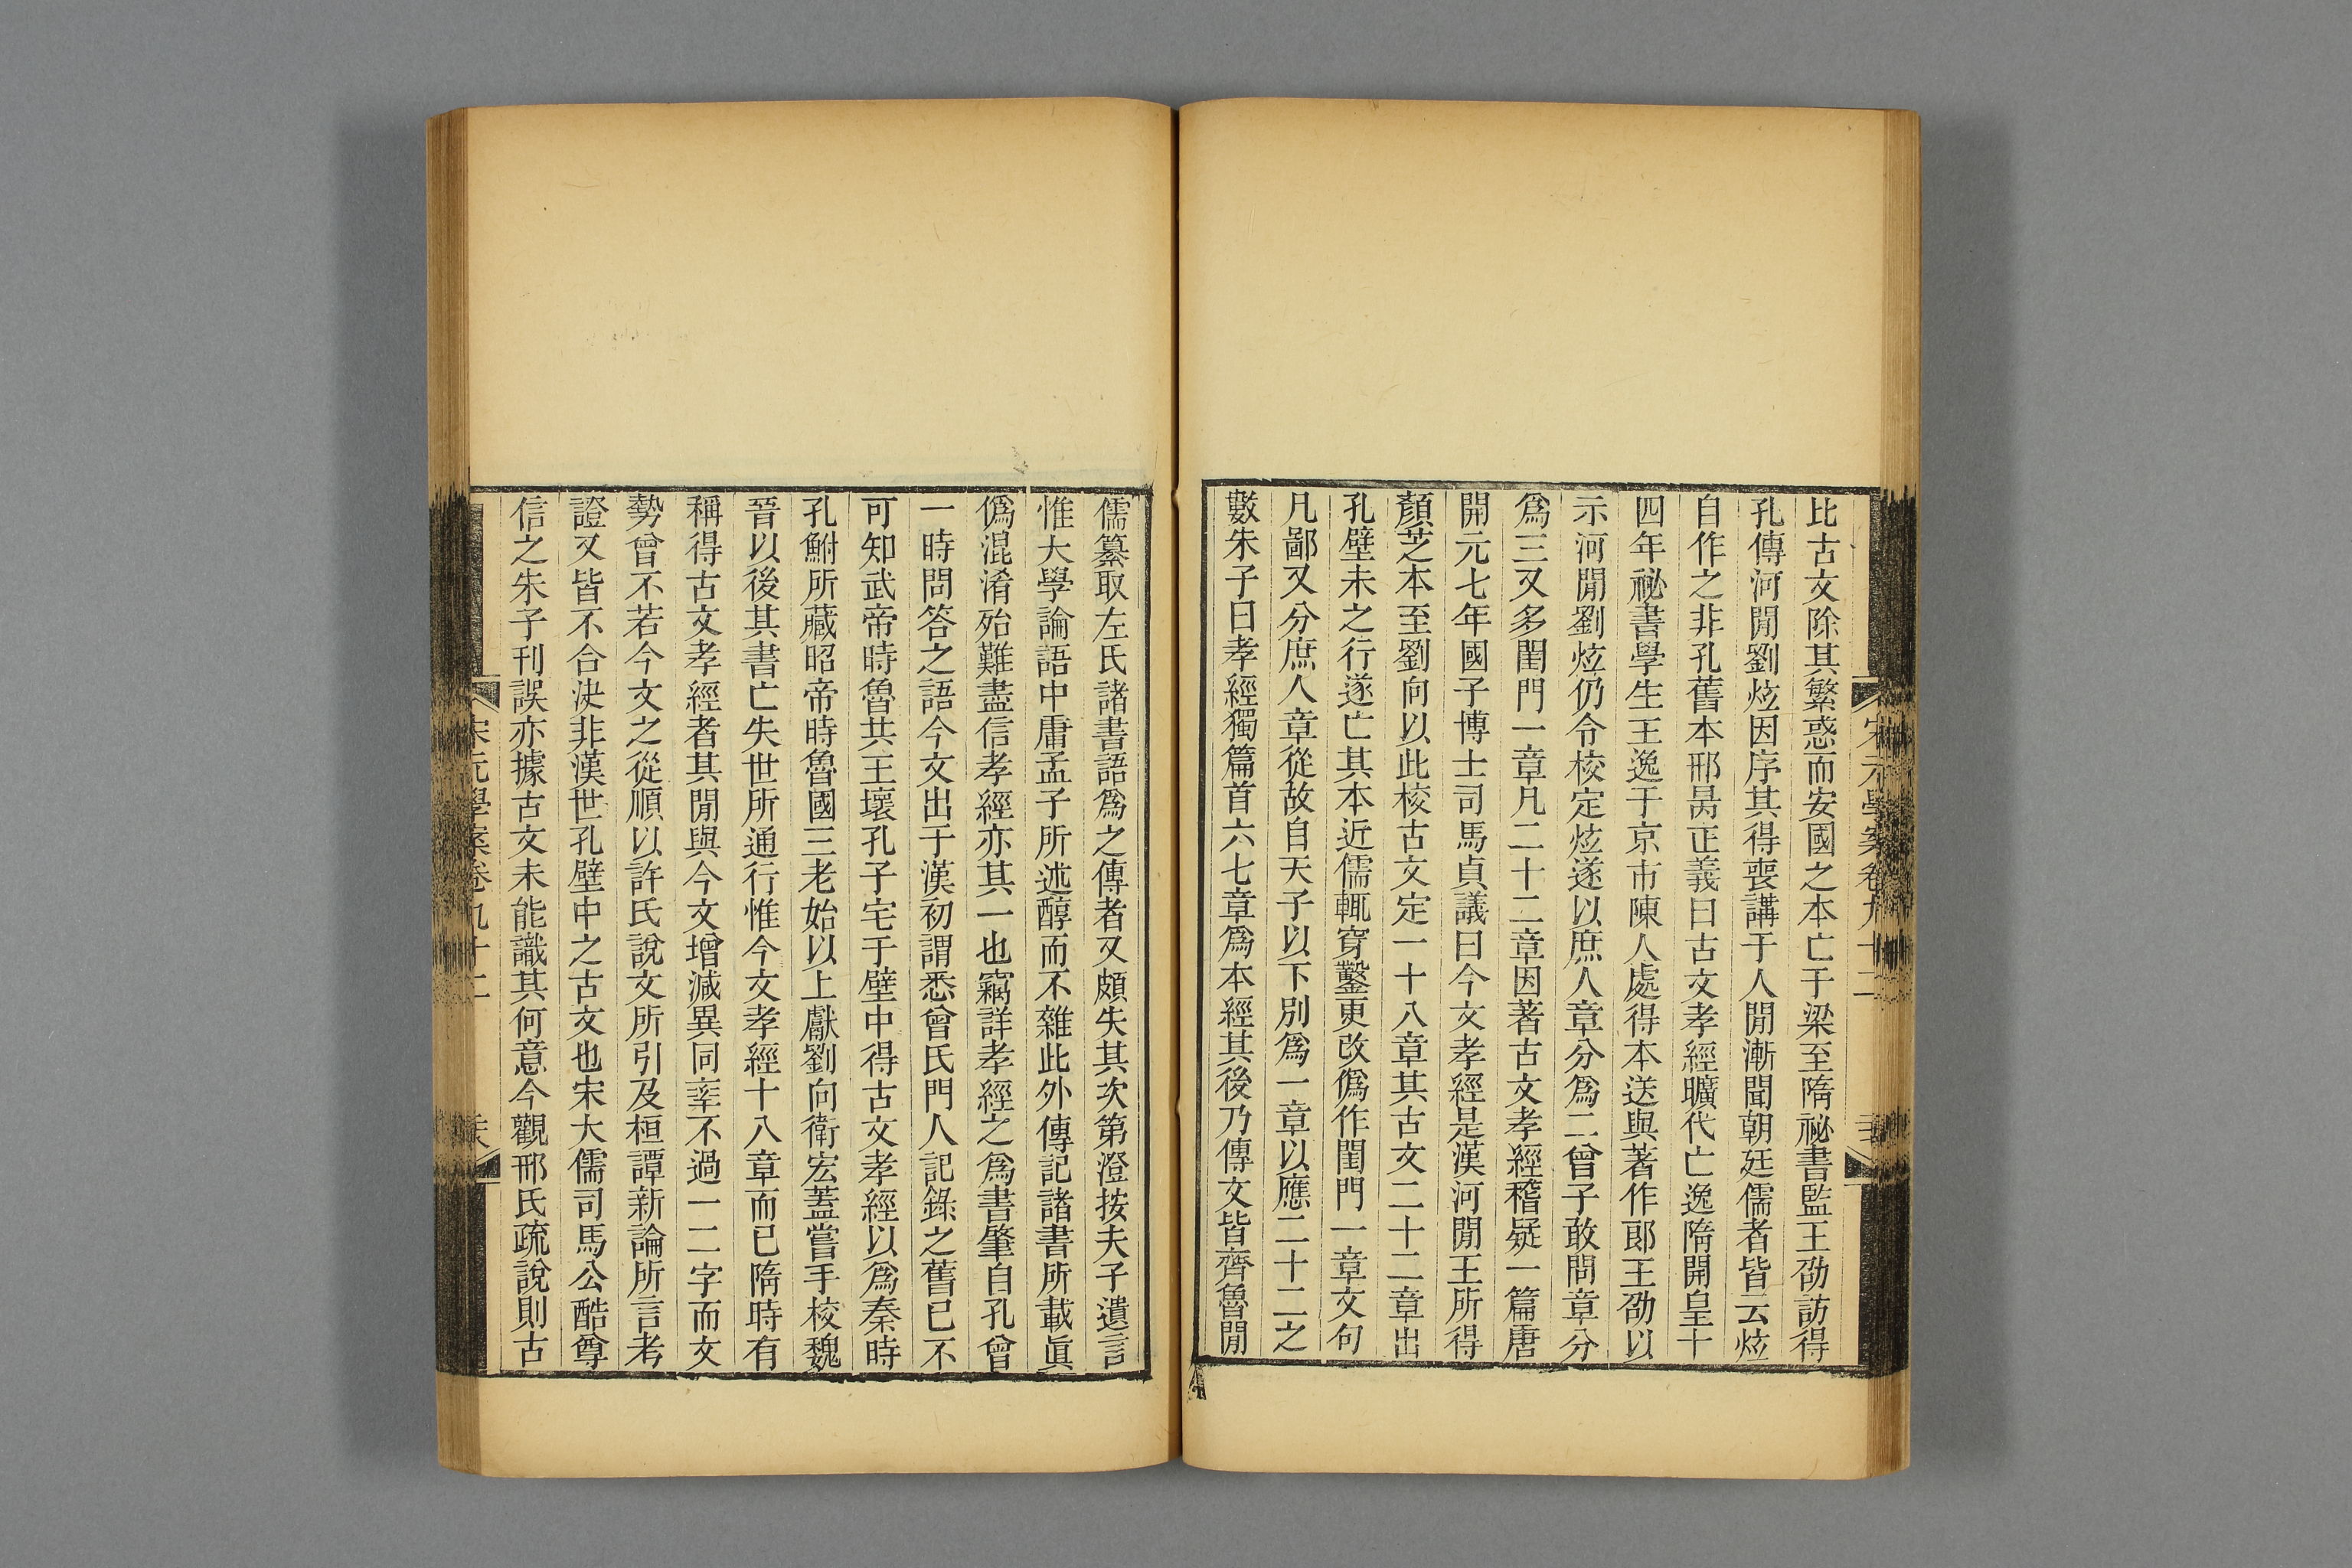 比古文除其繁惑而安國之本亡于梁至隋祕書監王劭訪得
孔傳河閒劉炫因序其得喪講于人閒漸聞朝廷儒者皆云炫
自作之非孔舊本邢昺正義曰古文孝經曠代亡逸隋開皇十
四年祕書學生王逸于京市陳人處得本送與著作郎王劭以
示河閒劉炫仍令校定炫遂以庶人章分爲二曾子敢問章分
爲三又多閨門一章凡二十二章因著古文孝經稽疑一篇唐
開元七年國子博士司馬貞議曰今文孝經是漢河閒王所得
顏芝本至劉向以此校古文定一十八章其古文二十二章出
孔壁未之行遂亡其本近儒輒穿鑿更改僞作閨門一章文句
凡鄙又分庶人章從故自天子以下別爲一章以應二十二之
數朱子曰孝經獨篇首六七章爲本經其後乃傳文皆齊魯閒
儒纂取左氏諸書語爲之傳者又頗失其次第澄按夫子遺言
惟大學論語中庸孟子所述醇而不雜此外傳記諸書所載眞
僞混淆殆難盡信孝經亦其一也竊詳孝經之爲書肇自孔曾
一時問答之語今文出于漢初謂悉曾氏門人記錄之舊已不
可知武帝時魯共王壞孔子宅于壁中得古文孝經以爲秦時
孔鮒所藏昭帝時魯國三老始以上獻劉向衛宏蓋嘗手校魏
晉以後其書亡失世所通行惟今文孝經十八章而已隋時有
稱得古文孝經者其閒與今文增減異同率不過一二字而文
勢曾不若今文之從順以許氏說文所引及桓譚新論所言考
證又皆不合決非漢世孔壁中之古文也宋大儒司馬公酷尊
信之朱子刊誤亦據古文未能識其何意今觀邢氏疏說則古
宋元學案卷九十二